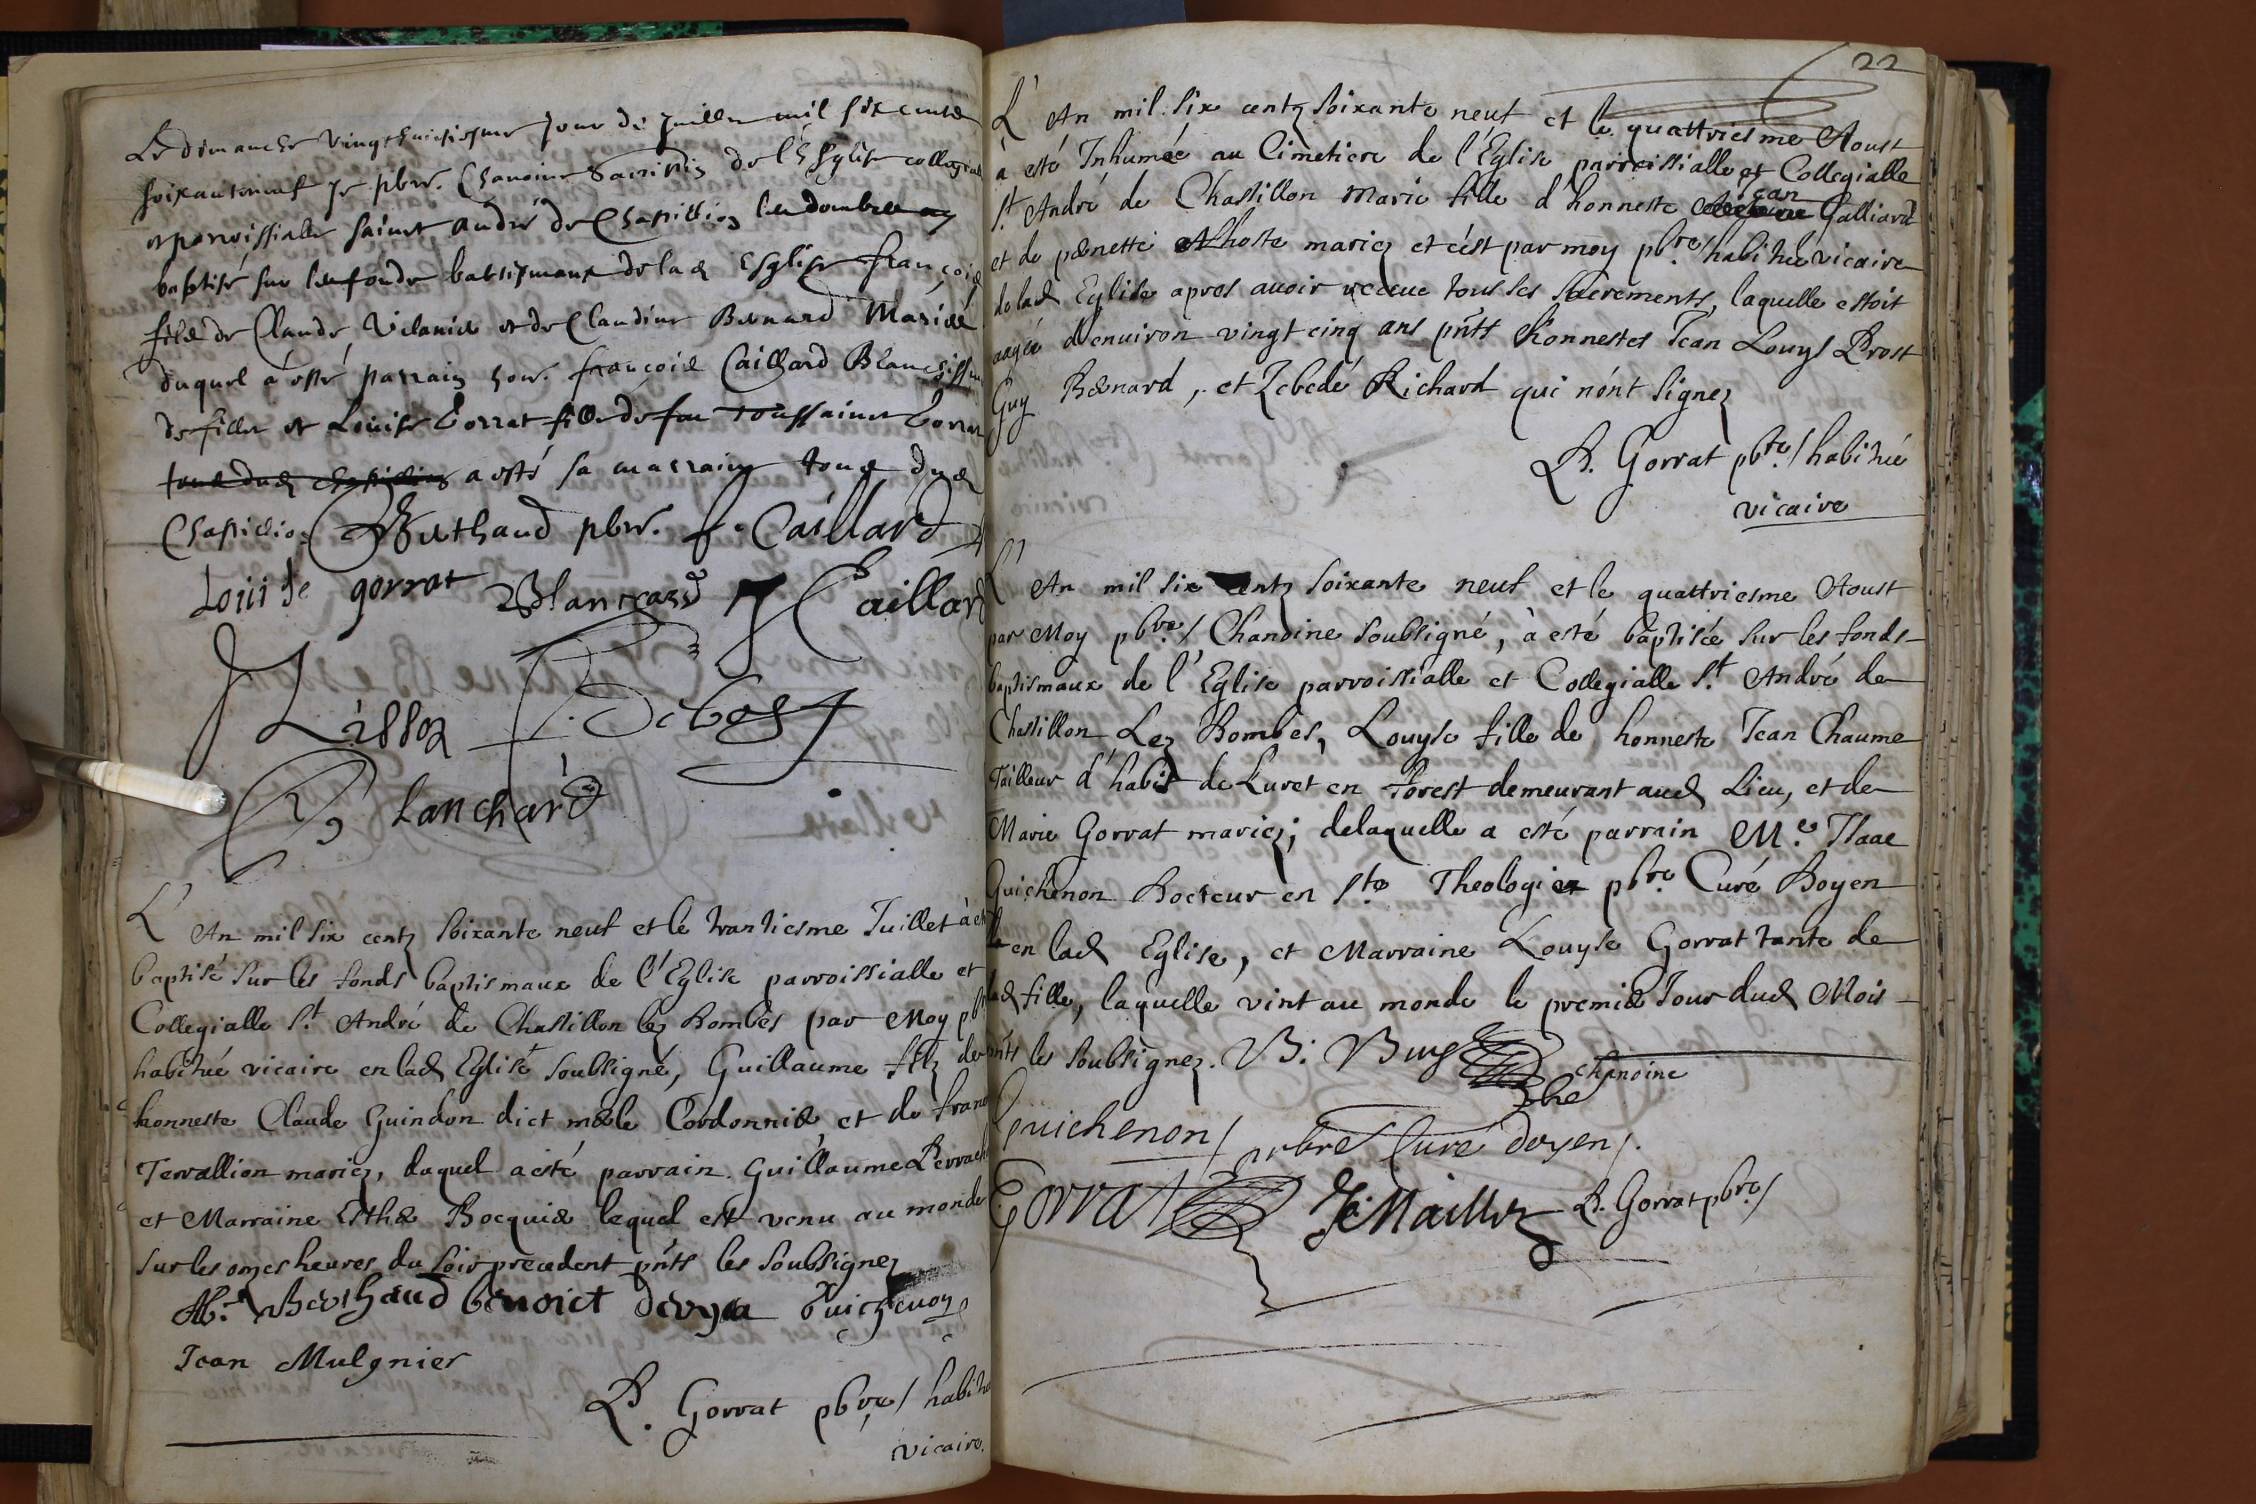 Le dimanche vingthuictiesme jour de juillet mil six cents
soixanteneuf je pbre. Chanoine Sacristin de l'Esglise collegial
et parroissialle sainct André de Chastillion les dombes ay
baptisé sur les fonds baptismaux de lad Esglise françois
fils de Claude Velanis et de Claudine Benard Mariés
duquel a esté parrain hon. françois Caillard Blanchissur
de fillet et Louise Gorrat fille de feu toussainct Gorrat
tous dud Chastillion a esté sa marraine tous dud
Chastillio. Berthaud pbre. f. Caillard
Louise gorrat Blanchard Caillard
Debost
Blanchard
L'An mil six centz soixante neuf et le trantiesme Juillet à esté
baptisé sur les fonds baptismaux de l'Eglise parroissialle et
Collegialle St. André de Chastillon lez Dombes par Moy pbre
habitué vicaire en lad Eglise soubsigné, Guillaume filz de
honneste Claude Guindon dict mesle Cordonnier et de fran
Tervallion mariez, duquel a esté parrain Guillaume Perrach
et Marraine Esther Bocquier lequel est venu au monde
sur les onzes heures du soir precedent pnts les soubsignez
Berthaud benoict deuyra Guichenon
Jean Mulgnier
B. Gorrat pbre/ habitué
vicaire.
22
L'An mil six centz soixante neuf et le quattriesme Aoust
à esté Inhumée au Cimetiere de l'Eglise parroissialle et Collegialle
St. André de Chastillon Marie fille d'honneste Jean Galliard
et de pernette Lhoste mariez et c'est par moy pbre/ habitué vicaire
de lad Eglise apres avoir receue tous les sacrements, laquelle estoit
aagée d'environ vingt cinq ans pnts honnestes Jean Louys Prost
Guy Benard, et Zebedé Richard qui n'ont signez
B. Gorrat pbre/ habitué
vicaire
L'An mil six centz soixante neuf et le quattriesme Aoust
par Moy pbre/ Chanoine soubsigné, à esté baptisée sur les fonds
baptismaux de l'Eglise parroissialle et Collegialle St. André de
Chastillon Lez Dombes, Louyse fille de honneste Jean Chaume
Tailleur d'habit de Luret en forest demeurant aud Lieu, et de
Marie Gorrat mariez; de laquelle a esté parrain Me. Isaac
Guichenon Docteur en Ste Theologie pbre Curé Doyen
en lad Eglise, et Marraine Louyse Gorrat tante de
lad fille, laquelle vint au monde le premier Jour dud Mois
pnts les soubsignez. B. chanoine
Guichenon/ prbre Curé doyen/.
Gorrat B. Gorrat pbre/